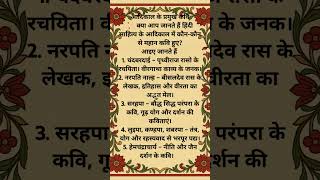 आदिकाल के प्रमुख कवि
क्या आप जानते हैं हिंदी
साहित्य के आदिकाल में कौन-कौन
से महान कवि हुए?
आइए जानते हैं
1. चंदबरदाई – पृथ्वीराज रासो के
रचयिता। वीरगाथा काव्य के जनक।
2. नरपति नाल्ह – बीसलदेव रास के
लेखक, इतिहास और वीरता का
अद्भुत मेल।
3. सरहपा – बौद्ध सिद्ध परंपरा के
कवि, गूढ़ योग और दर्शन की
कविताएं।
4. लुइपा, कण्हपा, शबरपा – तंत्र,
योग और रहस्यवाद से भरपूर पद।
5. हेमचंद्राचार्य – नीति और जैन
दर्शन के कवि।